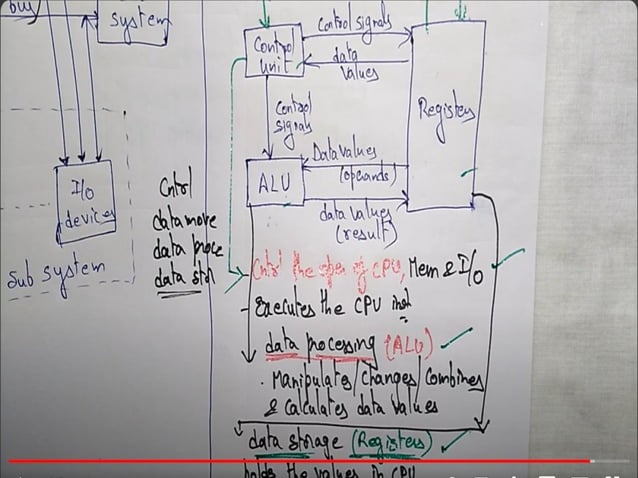 bus
system
Control signals
Control unit
data values
Control signals
Registers
Data values
(operands)
ALU
data values
(result)
I/O
devices
Cntrl
data move
data proce
data stor
Sub system
Cntrl the open of CPU, Mem & I/O
- Executes the CPU inst
data processing (ALU)
. Manipulates/changes/Combines
& Calculates data values
data storage (Registers)
holds the values in CPU